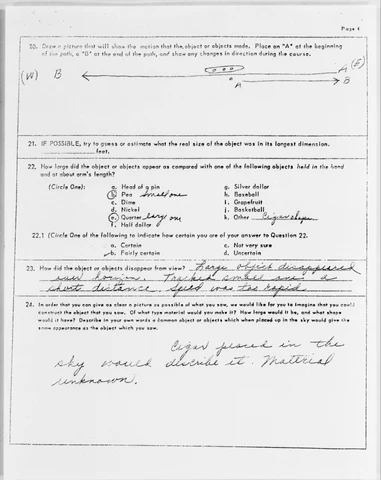 Page 4
20. Draw a picture that will show the motion that the object or objects made. Place an "A" at the beginning
of the path, a "B" at the end of the path, and show any changes in direction during the course.
(W) B A (E)
A B
21. IF POSSIBLE, try to guess or estimate what the real size of the object was in its longest dimension.
feet.
22. How large did the object or objects appear as compared with one of the following objects held in the hand
and at about arm's length?
(Circle One): a. Head of a pin g. Silver dollar
b. Pea small one h. Baseball
c. Dime i. Grapefruit
d. Nickel j. Basketball
e. Quarter large one k. Other Cigar shape
f. Half dollar
22.1 (Circle One of the following to indicate how certain you are of your answer to Question 22.
a. Certain c. Not very sure
b. Fairly certain d. Uncertain
23. How did the object or objects disappear from view? Large object disappeared
over horizon. Tracked small one a
short distance. Speed was too rapid.
24. In order that you can give as clear a picture as possible of what you saw, we would like for you to imagine that you could
construct the object that you saw. Of what type material would you make it? How large would it be, and what shape
would it have? Describe in your own words a common object or objects which when placed up in the sky would give the
same appearance as the object which you saw.
Cigar placed in the
sky would describe it. Material
unknown.